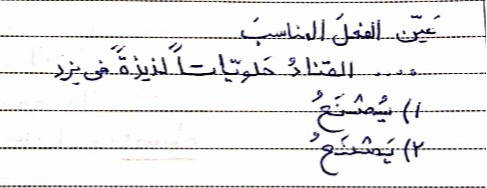 عَيّن الفعلَ المناسبَ
.... القنادُ حَلويّاتاً لذيذةً فی یزد
۱) يُصْنَعُ
۲) يَصْنَعُ